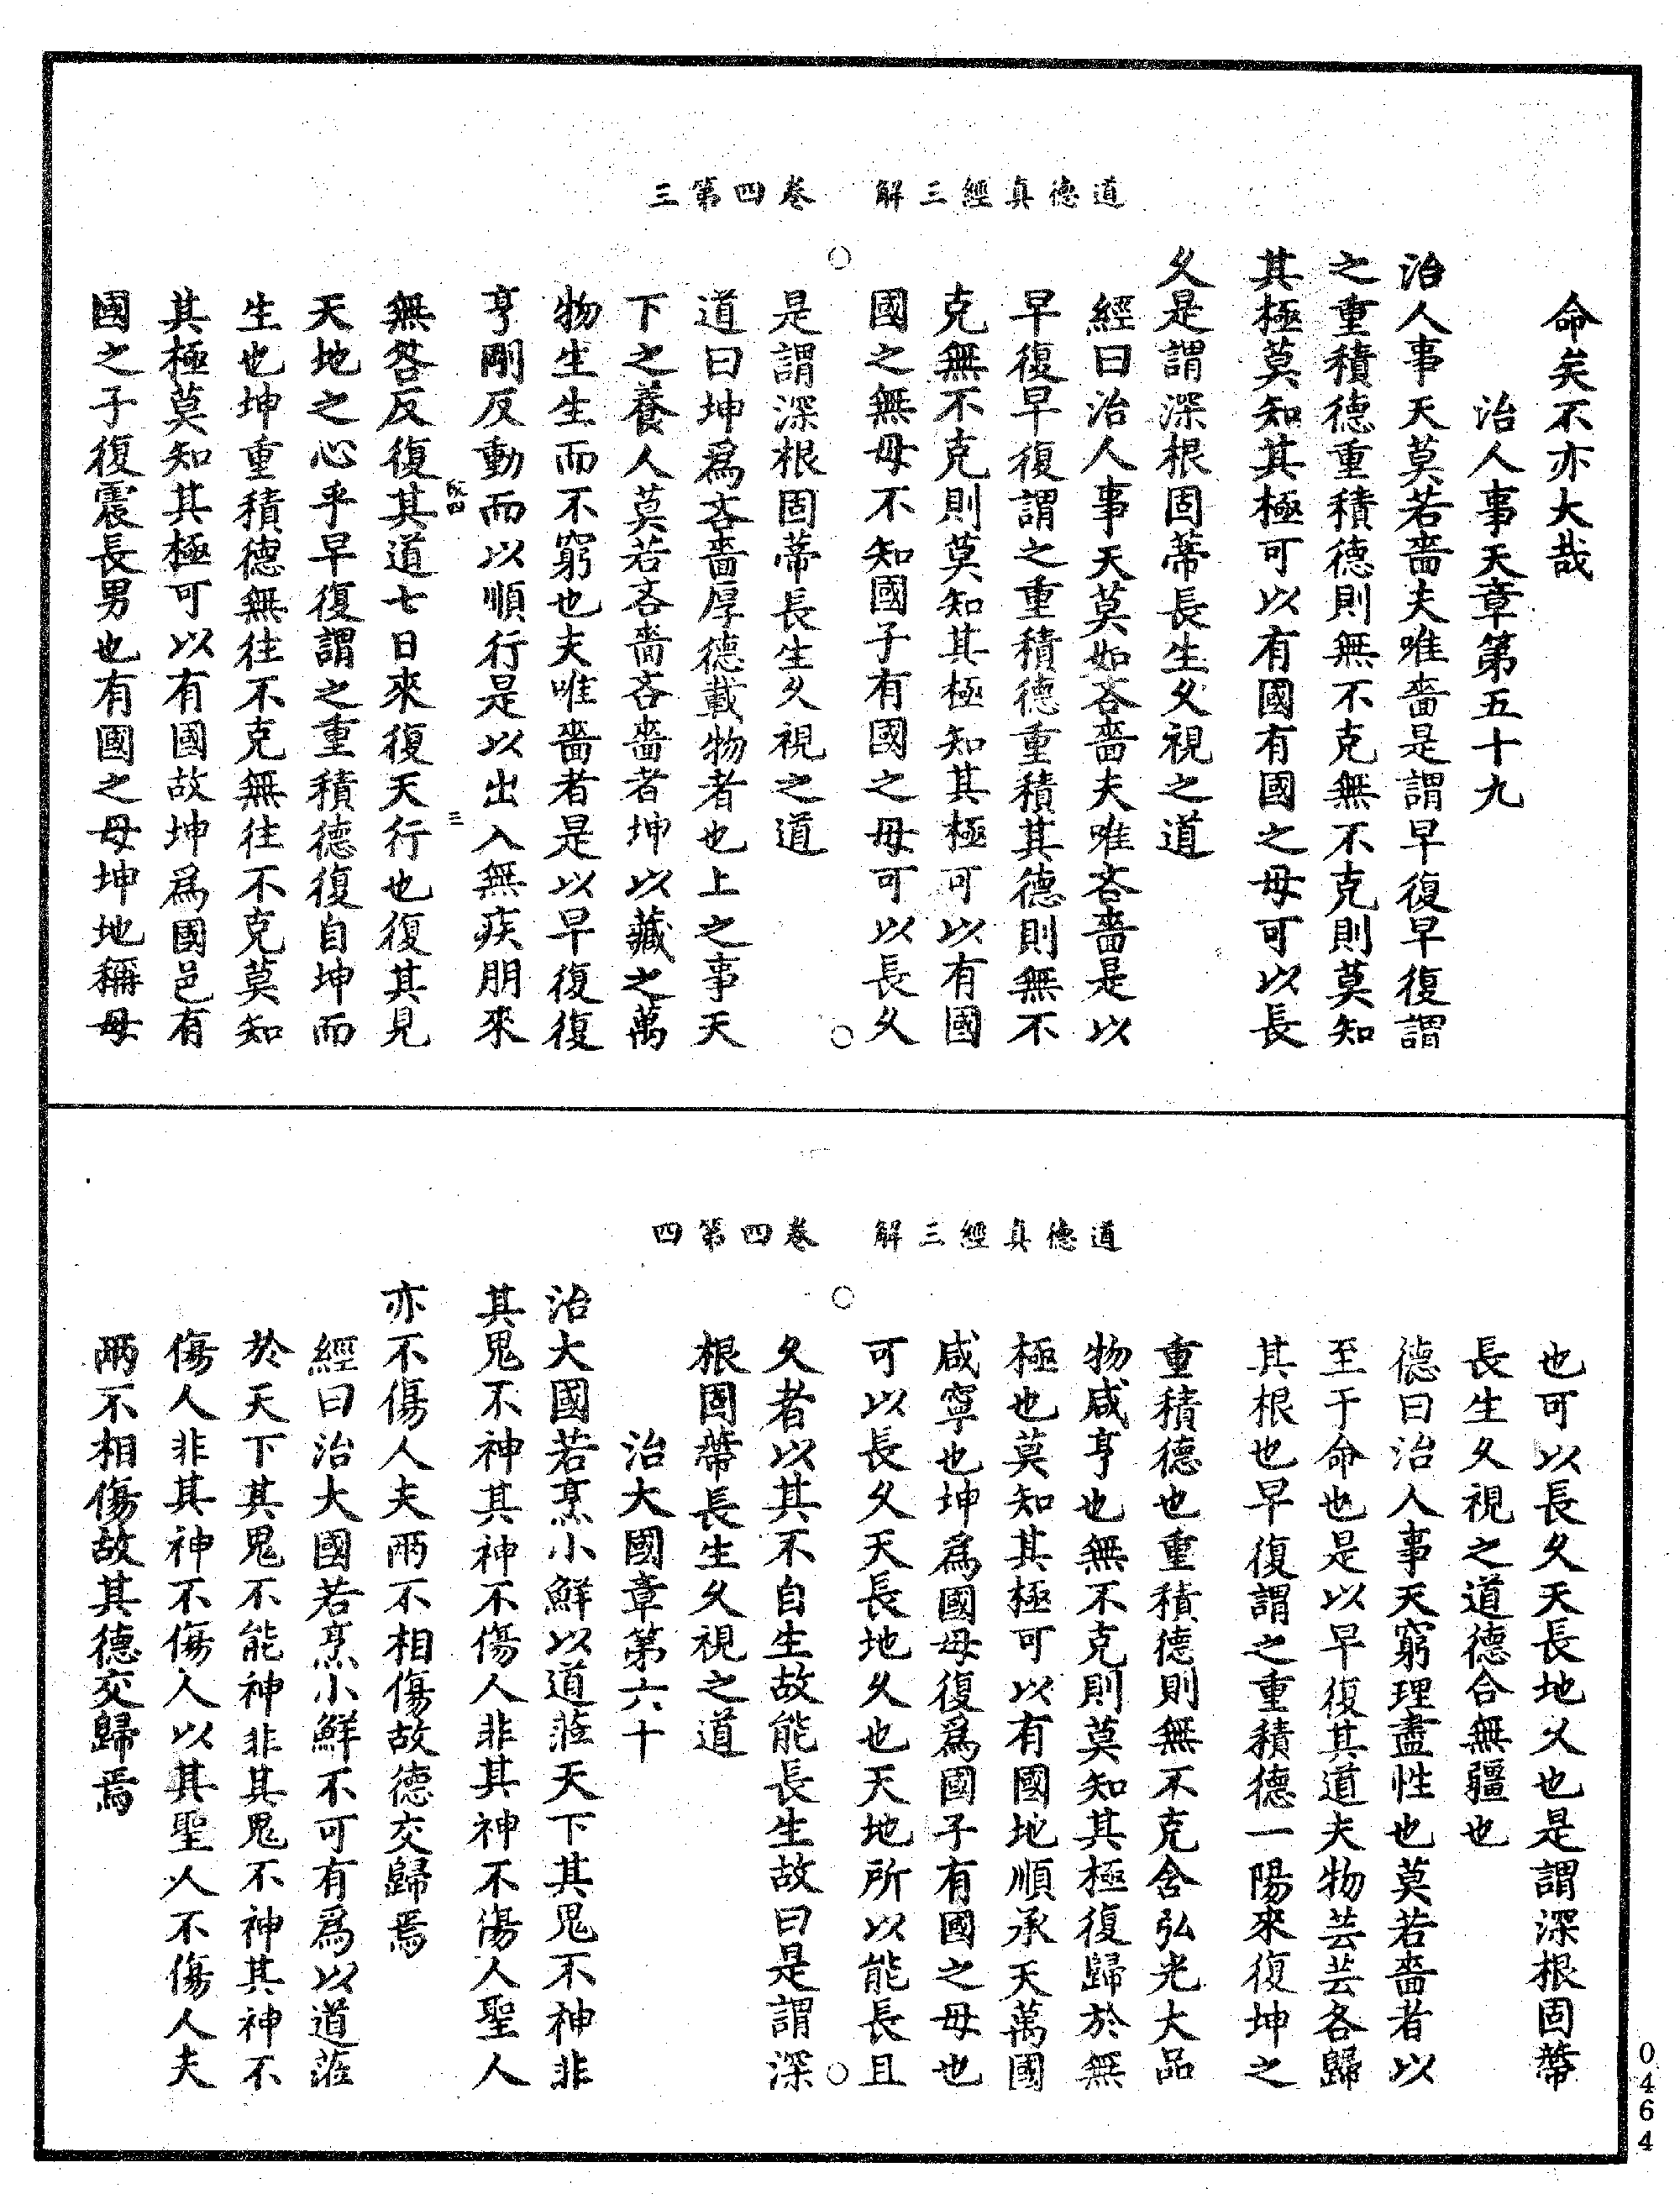 道德真經三解　卷四第三
命矣不亦大哉
治人事天章第五十九
治人事天莫若嗇夫唯嗇是謂早復早復謂
之重積德重積德則無不克無不克則莫知
其極莫知其極可以有國有國之母可以長
久是謂深根固蔕長生久視之道
經曰治人事天莫如吝嗇夫唯吝嗇是以
早復早復謂之重積德重積其德則無不
克無不克則莫知其極知其極可以有國
國之無母不知國子有國之母可以長久
是謂深根固蔕長生久視之道
道曰坤爲吝嗇厚德載物者也上之事天
下之養人莫若吝嗇吝嗇者坤以藏之萬
物生生而不窮也夫唯嗇者是以早復復
亨剛反動而以順行是以出入無疾朋來
無咎反復其道七日來復天行也復其見
天地之心乎早復謂之重積德復自坤而
生也坤重積德無往不克無往不克莫知
其極莫知其極可以有國故坤爲國邑有
國之子復震長男也有國之母坤地稱母
三
道德真經三解　卷四第四
也可以長久天長地久也是謂深根固蔕
長生久視之道德合無疆也
德曰治人事天窮理盡性也莫若嗇者以
至于命也是以早復其道夫物芸芸各歸
其根也早復謂之重積德一陽來復坤之
重積德也重積德則無不克含弘光大品
物咸亨也無不克則莫知其極復歸於無
極也莫知其極可以有國地順承天萬國
咸寧也坤爲國母復爲國子有國之母也
可以長久天長地久也天地所以能長且
久者以其不自生故能長生故曰是謂深
根固蔕長生久視之道
治大國章第六十
治大國若烹小鮮以道蒞天下其鬼不神非
其鬼不神其神不傷人非其神不傷人聖人
亦不傷人夫兩不相傷故德交歸焉
經曰治大國若烹小鮮不可有爲以道蒞
於天下其鬼不能神非其鬼不神其神不
傷人非其神不傷人以其聖人不傷人夫
兩不相傷故其德交歸焉
0464